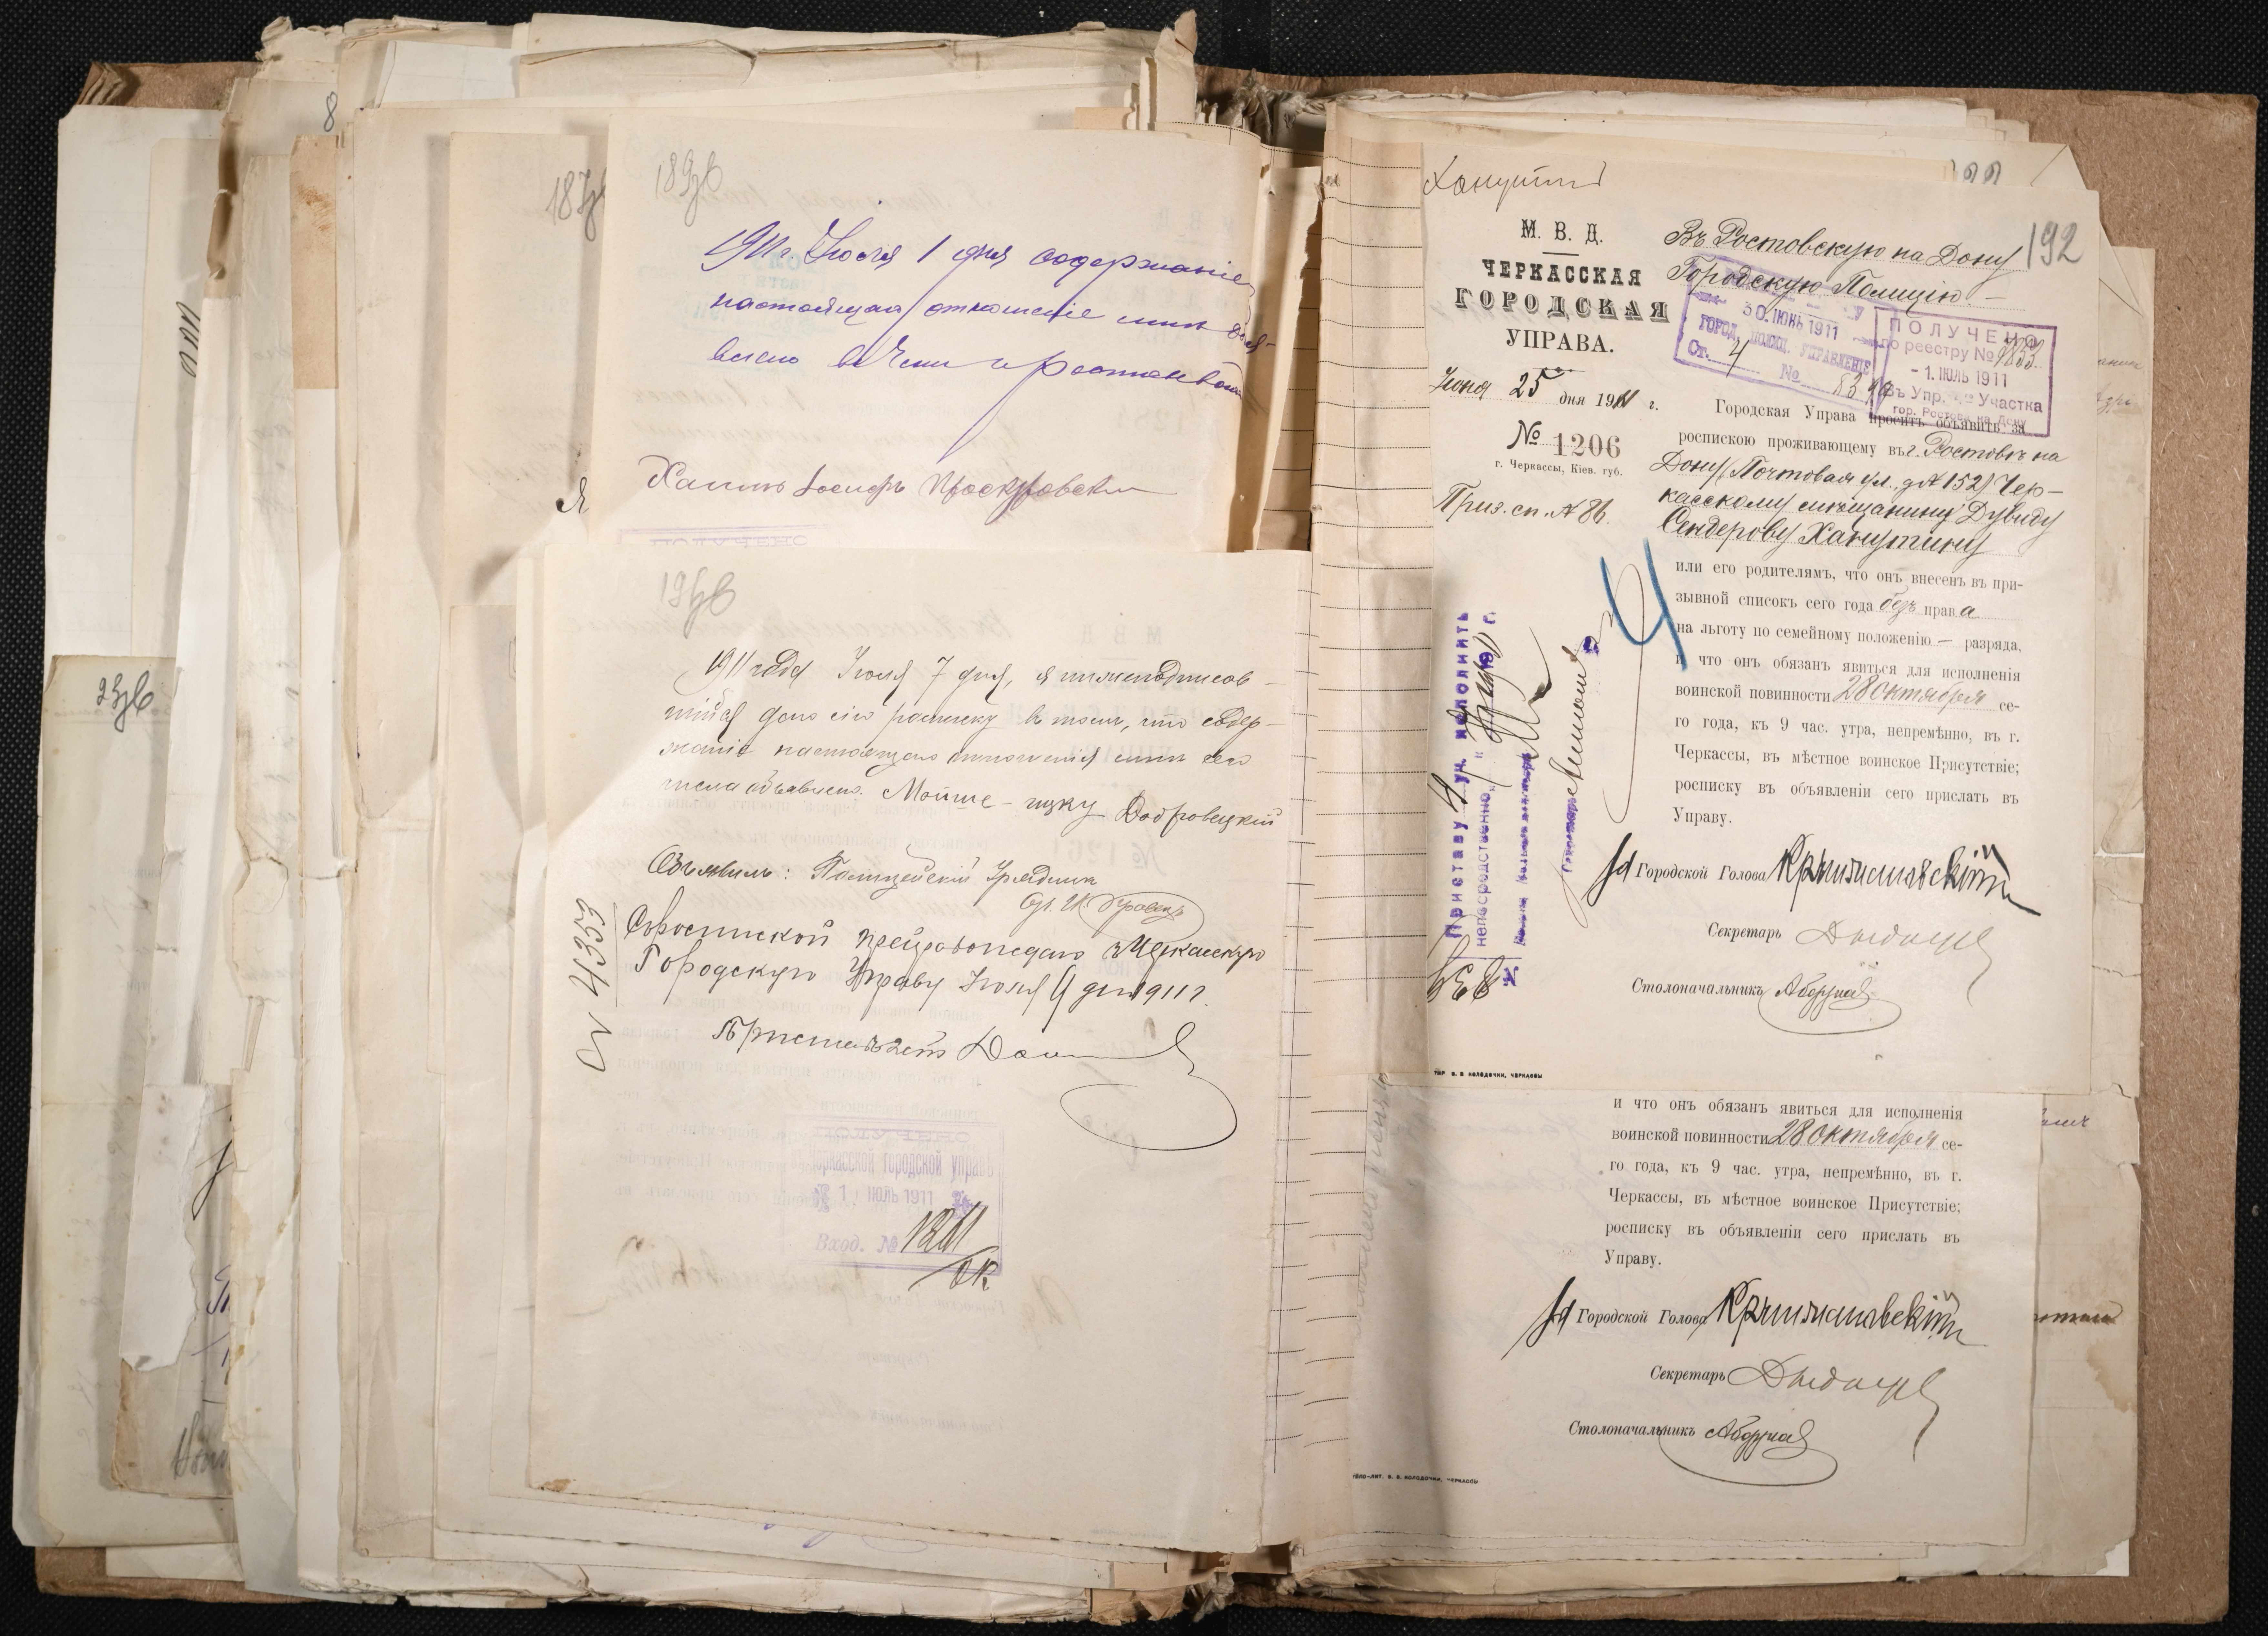 189об
1911 г. Июля 1 дня содержаніе
настоящаго отношеніе мнѣ объя-
влено в чем и росписываюсь
Хаимъ Іосифъ Проскуровскій
187
Я
191об
1911 года Іюля 7 дня, я нижеподписав-
шійся далъ сію расписку в томъ, что содер-
жаніе настоящаго отношенія мнѣ сего
числа объявлено. Мойше-ицку Добровецкій
Объявилъ: Полицейскій Урядникъ
Съ роспиской препровождаю въ Черкасскую
Городскую Управу Іюля 9 дня 1911 г.
№ 4353
Приставъ 2 ст.
ПОЛУЧЕНО
Черкасской городской управ
ІЮЛЬ 1911
Вход. №
23об
8
Ханутин
192
М. В. Д.
ЧЕРКАССКАЯ
ГОРОДСКАЯ
УПРАВА.
Іюня 25 дня 1911 г.
№ 1206
г. Черкассы, Кіев. губ.
Приз. сп. № 86.
Въ Ростовскую на Дону
Городскую Полицію
30. ІЮНЬ 1911
ГОРОД. ПОЛИЦ. УПРАВЛЕНІЕ
Ст. 4
№
ПОЛУЧЕНО
по реестру №
- 1. ІЮЛЬ 1911
Въ Упр. Участка
гор. Ростова на Дону
Городская Управа проситъ объявить за
роспискою проживающему въ г. Ростовѣ на
Дону (Почтовая ул., д № 152) Чер-
касскому мѣщанину Дувиду
Сендерову Ханутину
или его родителямъ, что онъ внесенъ въ при-
зывной списокъ сего года безъ права
на льготу по семейному положенію — разряда,
и что онъ обязанъ явиться для исполненія
воинской повинности 28 октября се-
го года, къ 9 час. утра, непремѣнно, въ г.
Черкассы, въ мѣстное воинское Присутствіе;
росписку въ объявленіи сего прислать въ
Управу.
4
Приставу 4 уч. исполнить
непосредственно,
Городской Голова
Секретарь
Столоначальникъ
ТИР В. В КОЛОДОЧКИ, ЧЕРКАССЫ
и что онъ обязанъ явиться для исполненія
воинской повинности 28 октября се-
го года, къ 9 час. утра, непремѣнно, въ г.
Черкассы, въ мѣстное воинское Присутствіе;
росписку въ объявленіи сего прислать въ
Управу.
Городской Голова
Секретарь
Столоначальникъ
ТИПО-ЛИТ. В. В. КОЛОДОЧКИ, ЧЕРКАССЫ